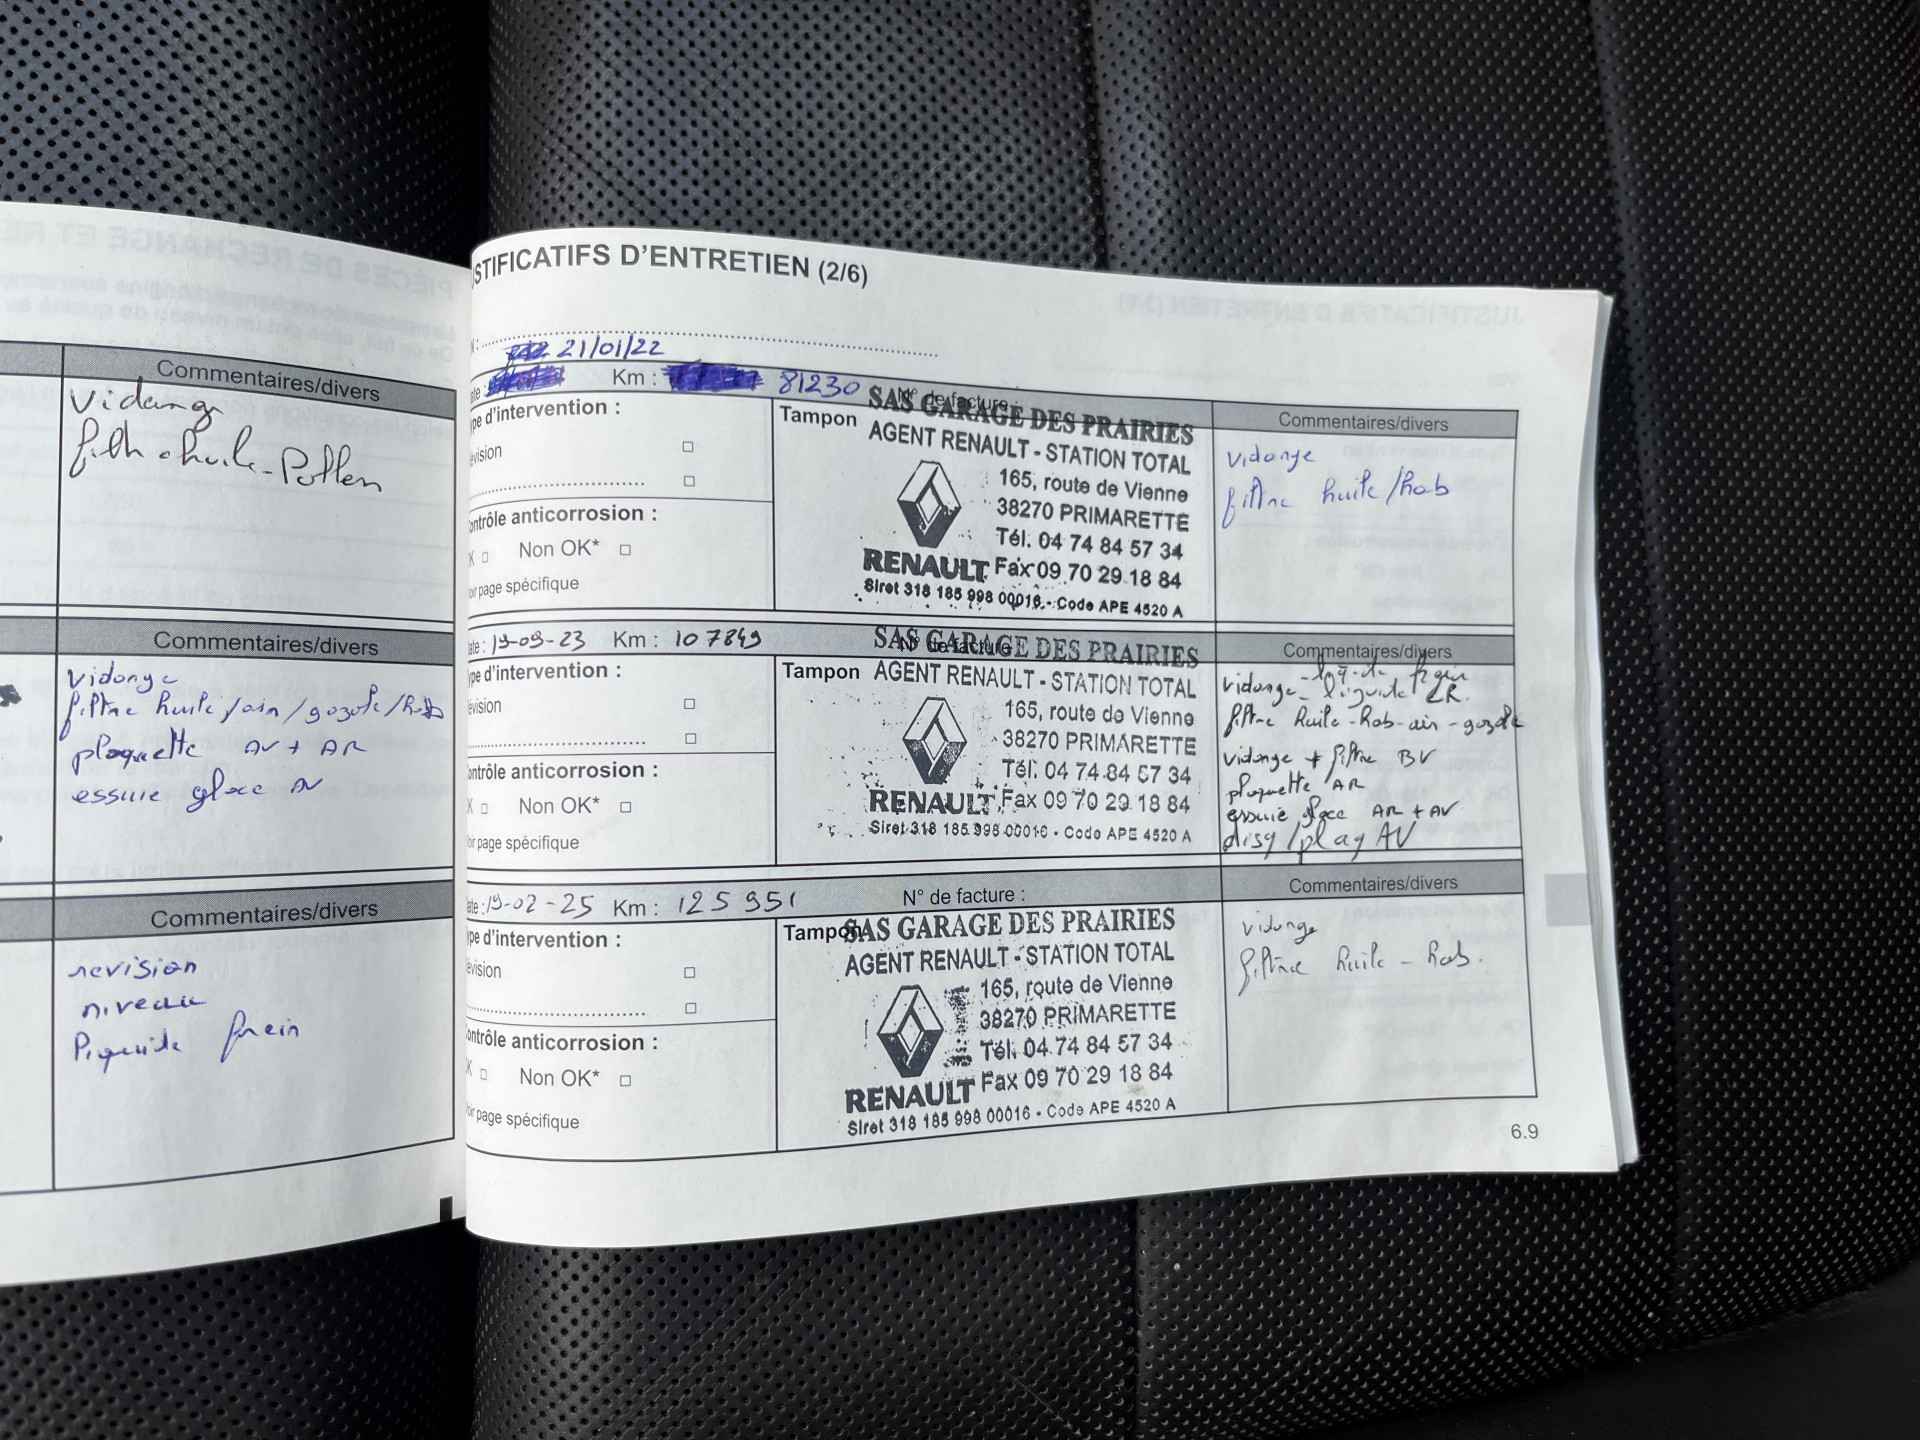 Commentaires/divers
vidange
huile - Pollen
Commentaires/divers
vidange
filtre huile/air/gazole/hab
plaquette AV + AR
essuie glace AV
Commentaires/divers
revision
niveau
liquide frein
STIFICATIFS D'ENTRETIEN (2/6)
21/01/22
ate : Km : 81230 N° de facture :
ype d'intervention :
évision
ontrôle anticorrosion :
K Non OK*
oir page spécifique
Tampon
SAS GARAGE DES PRAIRIES
AGENT RENAULT - STATION TOTAL
165, route de Vienne
38270 PRIMARETTE
Tél. 04 74 84 57 34
RENAULT Fax 09 70 29 18 84
Siret 318 185 998 00016 - Code APE 4520 A
Commentaires/divers
vidange
filtre huile/hab
ate : 19-09-23 Km : 107849 N° de facture
ype d'intervention :
évision
ontrôle anticorrosion :
K Non OK*
oir page spécifique
Tampon
SAS GARAGE DES PRAIRIES
AGENT RENAULT - STATION TOTAL
165, route de Vienne
38270 PRIMARETTE
Tél. 04 74 84 57 34
RENAULT Fax 09 70 29 18 84
Siret 318 185 998 00016 - Code APE 4520 A
Commentaires/divers
liq de frein
vidange - liquide LR.
filtre huile - hab - air - gazole
vidange + filtre BV
plaquette AR
essuie glace AR + AV
disq/plaq AV
ate : 19-02-25 Km : 125951 N° de facture :
ype d'intervention :
évision
ontrôle anticorrosion :
K Non OK*
oir page spécifique
Tampon
SAS GARAGE DES PRAIRIES
AGENT RENAULT - STATION TOTAL
165, route de Vienne
38270 PRIMARETTE
Tél. 04 74 84 57 34
RENAULT Fax 09 70 29 18 84
Siret 318 185 998 00016 - Code APE 4520 A
Commentaires/divers
vidange
filtre huile - hab.
6.9